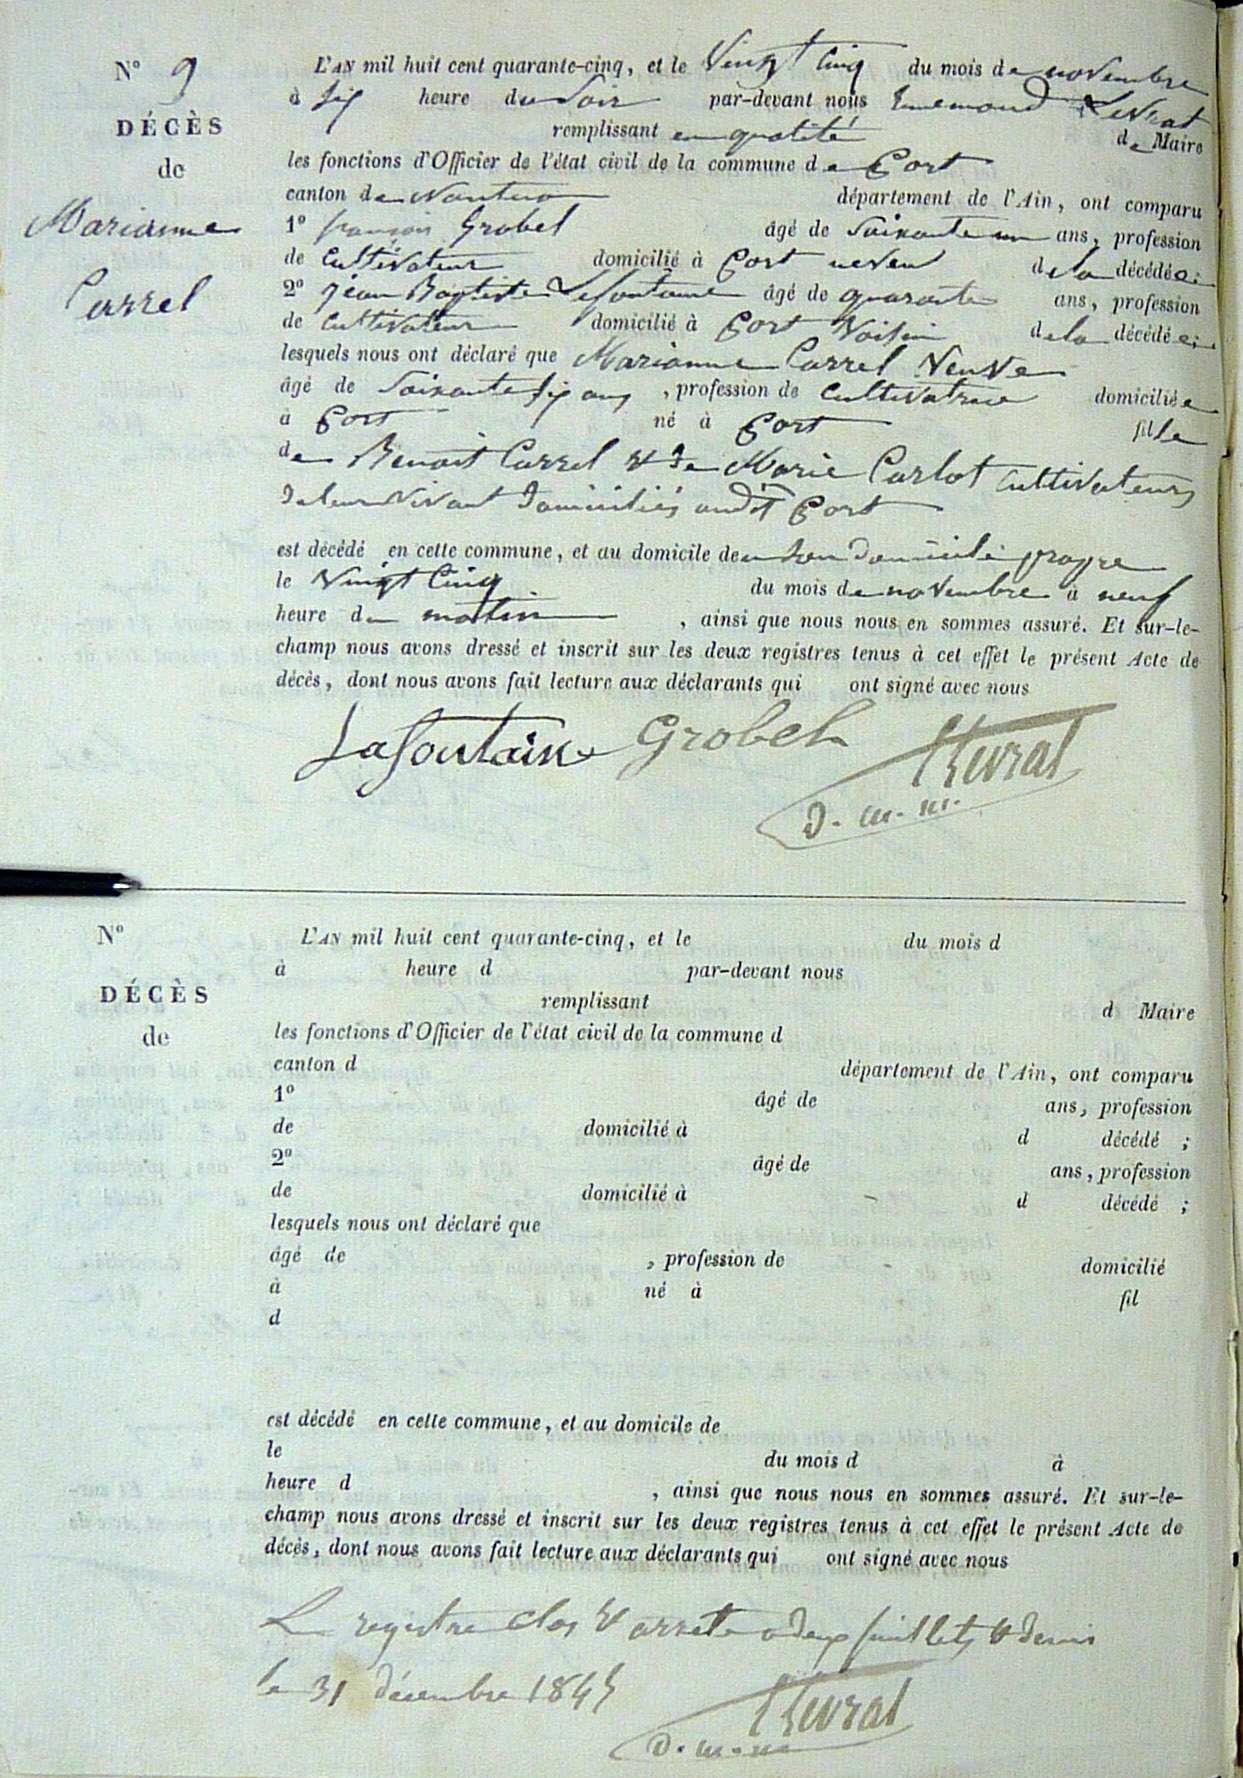 N° 9
DÉCÈS
de
Marianne
Carrel
L'AN mil huit cent quarante-cinq, et le Vingt Cinq du mois de novembre
à Six heure du Soir par-devant nous Ennemond Levrat
remplissant en qualité de Maire
les fonctions d'Officier de l'état civil de la commune de Port
canton de Nantua département de l'Ain, ont comparu
1° françois Grobel âgé de Soixante un ans, profession
de Cultivateur domicilié à Port neveu de la décédée;
2° Jean Baptiste Lafontaine âgé de quarante ans, profession
de Cultivateur domicilié à Port Voisin de la décédée;
lesquels nous ont déclaré que Marianne Carrel Veuve
âgé de Soixante Six ans, profession de Cultivatrice domiciliée
à Port né à Port fille
de Benoit Carrel & de Marie Carlot Cultivateurs
de leur Vivant Domiciliés audit Port
est décédé en cette commune, et au domicile de en Son domicile propre
le Vingt Cinq du mois de novembre à neuf
heure du matin, ainsi que nous nous en sommes assuré. Et sur-le-
champ nous avons dressé et inscrit sur les deux registres tenus à cet effet le présent Acte de
décès, dont nous avons fait lecture aux déclarants qui ont signé avec nous
Lafontaine Grobel Levrat
N°
DÉCÈS
de
L'AN mil huit cent quarante-cinq, et le du mois d
à heure d par-devant nous
remplissant d Maire
les fonctions d'Officier de l'état civil de la commune d
canton d département de l'Ain, ont comparu
1° âgé de ans, profession
de domicilié à d décédé ;
2° âgé de ans, profession
de domicilié à d décédé ;
lesquels nous ont déclaré que
âgé de , profession de domicilié
à né à fil
d
est décédé en cette commune, et au domicile de
le du mois d à
heure d , ainsi que nous nous en sommes assuré. Et sur-le-
champ nous avons dressé et inscrit sur les deux registres tenus à cet effet le présent Acte de
décès, dont nous avons fait lecture aux déclarants qui ont signé avec nous
Le registre clos & arreté a deux feuillets & demi
le 31 décembre 1845
Levrat